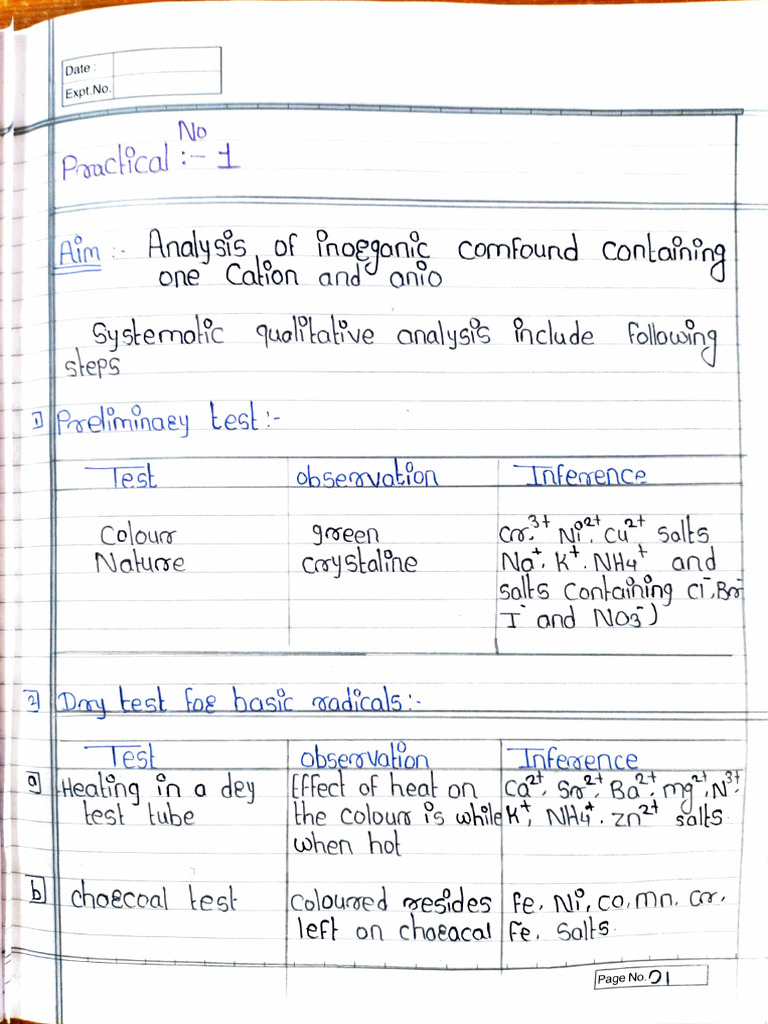 Date :
Expt.No.
No
Practical :- 1
Aim :- Analysis of inorganic comfound containing
one Cation and anio
Systematic qualitative analysis include following
steps
1) Preliminary test :-
Test observation Inference
Colour green Cr³⁺ Ni²⁺ Cu²⁺ salts
Nature crystaline Na⁺. K⁺. NH₄⁺ and
salts containing Cl⁻, Br⁻
I⁻ and NO₃⁻)
2) Dry test for basic radicals :-
Test observation Inference
a) Heating in a dry Effect of heat on Ca²⁺. Sr²⁺. Ba²⁺. mg²⁺, N³⁺
test tube the colour is while K⁺, NH₄⁺. zn²⁺ salts.
when hot
b) charcoal test coloured resides Fe. Ni, co, mn. cr.
left on characal Fe. Salts.
Page No. 01